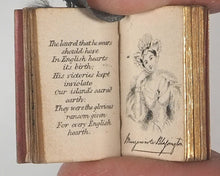 The laurel that he wears
should hope
In English hearts
its birth;
His victories kept
inviolate
Our island's sacred
earth.
They were the glorious
ransom given
For every English
hearth.
Marguerite Blessington